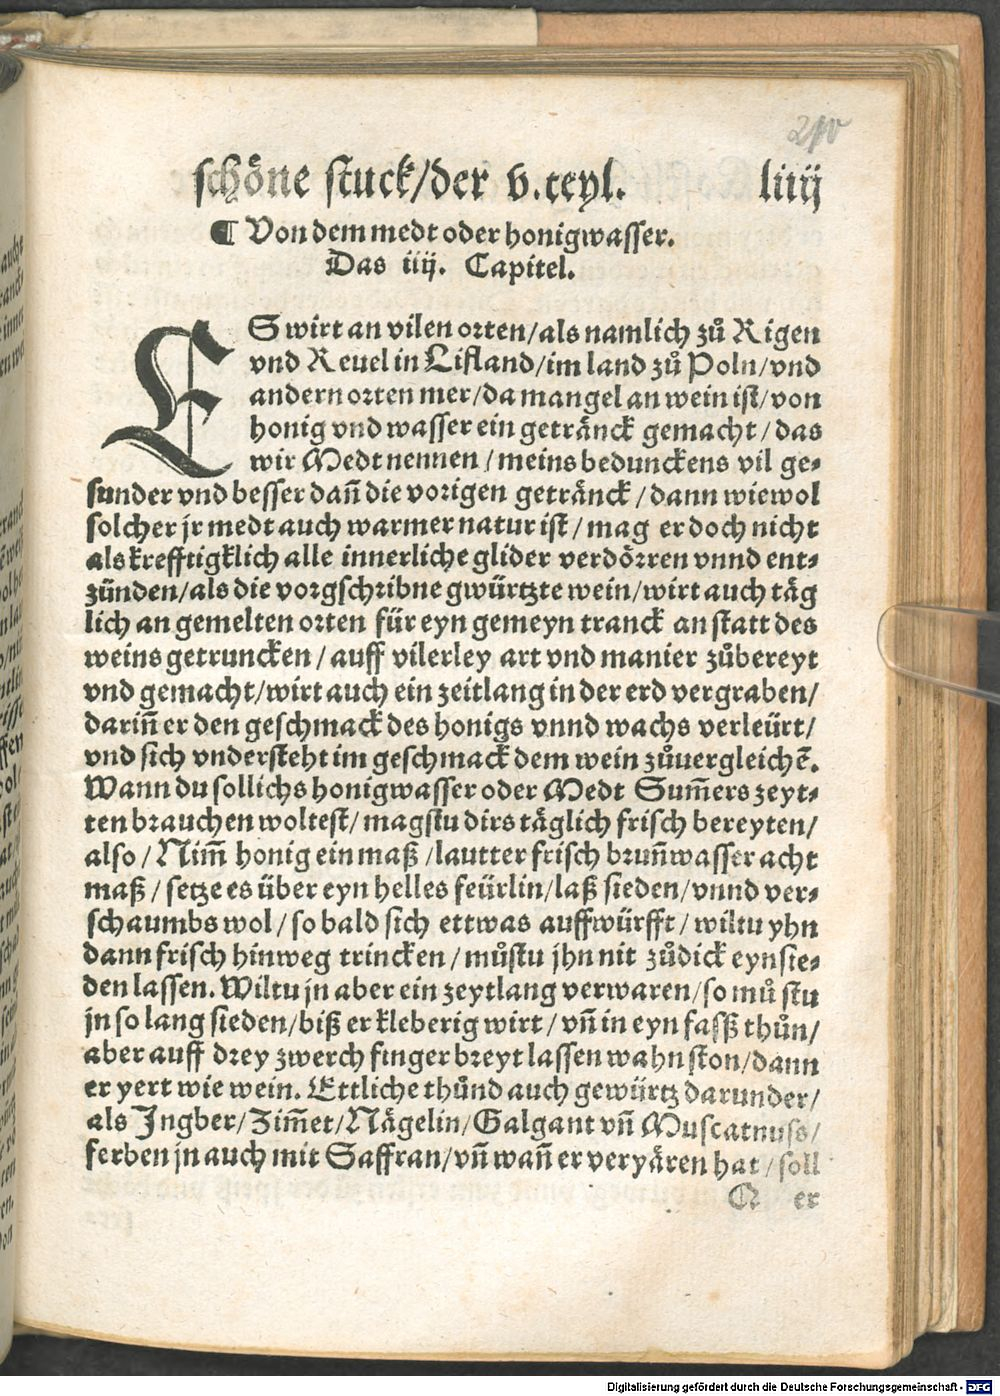 schöne stuck/der v.teyl. liiij
¶ Von dem medt oder honigwasser.
Das iiij. Capitel.
ES wirt an vilen orten/als namlich zů Rigen
vnd Reuel in Lifland/im land zů Poln/vnd
andern orten mer/da mangel an wein ist/von
honig vnd wasser ein getränck gemacht/das
wir Medt nennen/meins bedunckens vil ge⸗
sunder vnd besser dañ die vorigen getränck/dann wiewol
solcher jr medt auch warmer natur ist/mag er doch nicht
als krefftigklich alle innerliche glider verdörren vnnd ent⸗
zünden/als die vorgschribne gwürtzte wein/wirt auch täg
lich an gemelten orten für eyn gemeyn tranck an statt des
weins getruncken/auff vilerley art vnd manier zůbereyt
vnd gemacht/wirt auch ein zeitlang in der erd vergraben/
dariñ er den geschmack des honigs vnnd wachs verleürt/
vnd sich vndersteht im geschmack dem wein zůuergleichē.
Wann du sollichs honigwasser oder Medt Sum̃ers zeyt⸗
ten brauchen woltest/magstu dirs täglich frisch bereyten/
also/Nim̃ honig ein maß/lautter frisch bruñwasser acht
maß/setze es über eyn helles feürlin/laß sieden/vnnd ver⸗
schaumbs wol/so bald sich ettwas auffwürfft/wiltu yhn
dann frisch hinweg trincken/můstu jhn nit zůdick eynsie⸗
den lassen. Wiltu jn aber ein zeytlang verwaren/so můstu
jn so lang sieden/biß er kleberig wirt/vñ in eyn fasß thůn/
aber auff drey zwerch finger breyt lassen wahn ston/dann
er yert wie wein. Ettliche thůnd auch gewürtz darunder/
als Ingber/Zim̃et/Nägelin/Galgant vñ Muscatnuss/
ferben jn auch mit Saffran/vñ wañ er veryären hat/soll
er
Digitalisierung gefördert durch die Deutsche Forschungsgemeinschaft - DFG